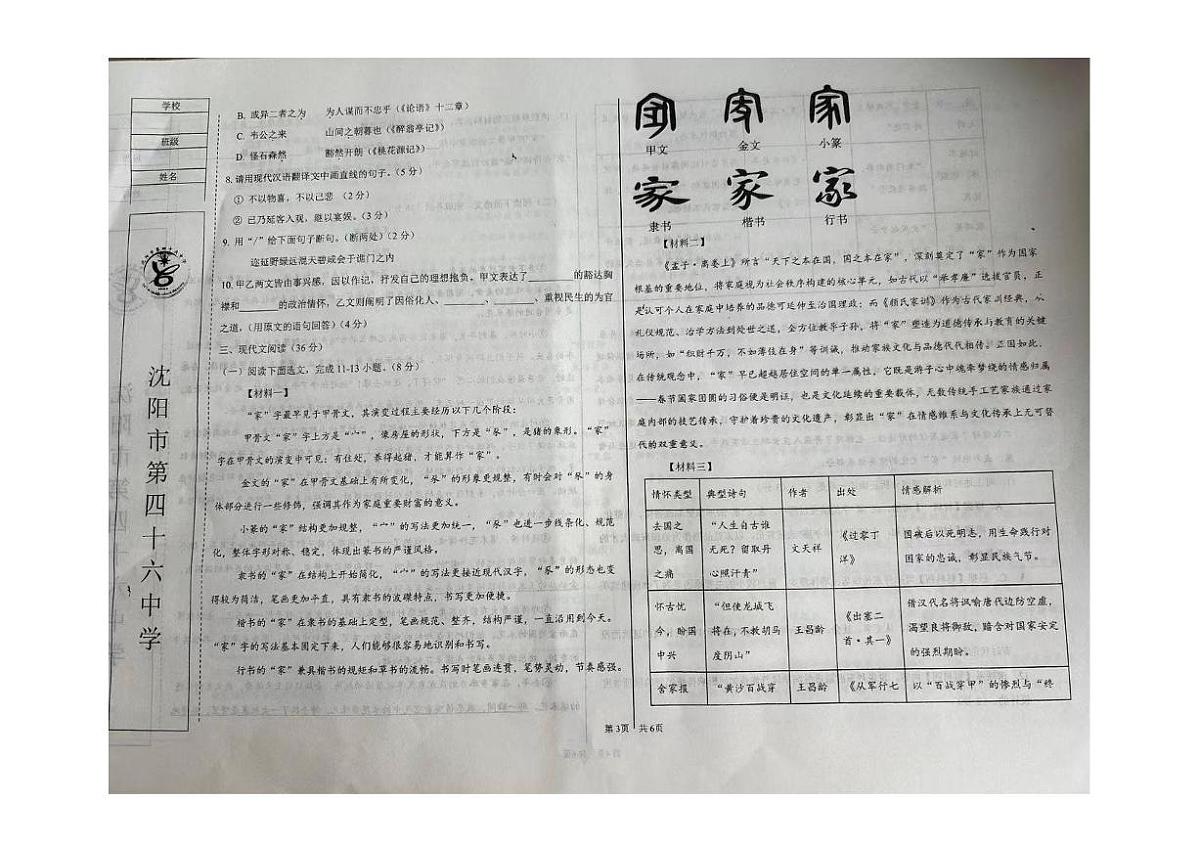 学校
班级
姓名
沈阳市第四十六中学
B. 或异二者之为 为人谋而不忠乎(《论语》十二章)
C. 韦公之来 山间之朝暮也(《醉翁亭记》)
D. 怪石森然 豁然开朗(《桃花源记》)
8. 请用现代汉语翻译文中画直线的句子。(5 分)
① 不以物喜,不以己悲 (2 分)
② 已乃延客入观,继以宴娱。(3 分)
9. 用“/”给下面句子断句。(断两处)(2 分)
迩延野绿远混天碧咸会于谯门之内
10. 甲乙两文皆由事兴感,因以作记,抒发自己的理想抱负。甲文表达了________的豁达胸
襟和________的政治情怀,乙文则阐明了因俗化人、________、________、重视民生的为官
之道。(用原文的语句回答)(4 分)
三、现代文阅读(36 分)
(一)阅读下面选文,完成 11-13 小题。(8 分)
【材料一】
“家”字最早见于甲骨文,其演变过程主要经历以下几个阶段:
甲骨文“家”字上方是“宀”,像房屋的形状,下方是“豕”,是猪的象形。“家”
字在甲骨文的演变中可见:有住处,养得起猪,才能算作“家”。
金文的“家”在甲骨文基础上有所变化,“豕”的形象更规整,有时会对“豕”的身
体部分进行一些修饰,强调其作为家庭重要财富的意义。
小篆的“家”结构更加规整,“宀”的写法更加统一,“豕”也进一步线条化、规范
化,整体字形对称、稳定,体现出篆书的严谨风格。
隶书的“家”在结构上开始简化,“宀”的写法更接近现代汉字,“豕”的形态也变
得较为简洁,笔画更加平直,具有隶书的波磔特点,书写更加便捷。
楷书的“家”在隶书的基础上定型,笔画规范、整齐,结构严谨,一直沿用到今天。
“家”字的写法基本固定下来,人们能够很容易地识别和书写。
行书的“家”兼具楷书的规矩和草书的流畅。书写时笔画连贯,笔势灵动,节奏感强。
家 家 家
甲文 金文 小篆
家 家 家
隶书 楷书 行书
【材料二】
《孟子·离娄上》所言“天下之本在国,国之本在家”,深刻奠定了“家”作为国家
根基的重要地位,将家庭视为社会秩序构建的核心单元,如古代以“举孝廉”选拔官员,正
是认可个人在家庭中培养的品德可延伸至治国理政;而《颜氏家训》作为古代家训经典,从
礼仪规范、治学方法到处世之道,全方位教导子孙,将“家”塑造为道德传承与教育的关键
场所,如“积财千万,不如薄伎在身”等训诫,推动家族文化与品德代代相传。正因如此,
在传统观念中,“家”早已超越居住空间的单一属性,它既是游子心中魂牵梦绕的情感归属
——春节国家团圆的习俗便是明证,也是文化延续的重要载体,无数传统手工艺家族通过家
庭内部的技艺传承,守护着珍贵的文化遗产,彰显出“家”在情感维系与文化传承上无可替
代的双重意义。
【材料三】
情怀类型 典型诗句 作者 出处 情感解析
去国之思,离国之痛 “人生自古谁无死?留取丹心照汗青” 文天祥 《过零丁洋》 国破后以死明志,用生命践行对国家的忠诚,彰显民族气节。
怀古忧今,盼国中兴 “但使龙城飞将在,不教胡马度阴山” 王昌龄 《出塞二首·其一》 借汉代名将讽喻唐代边防空虚,渴望良将御敌,暗含对国家安定的强烈期盼。
舍家报 “黄沙百战穿 王昌龄 《从军行七 以“百战穿甲”的惨烈与“终
第 3页 共 6页